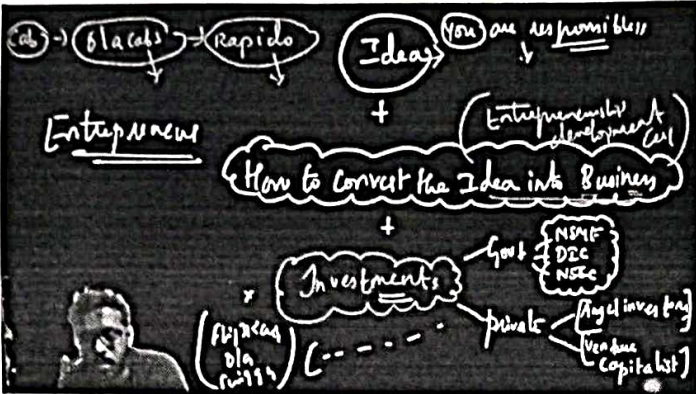 Cab → Olacabs → Rapido
Idea → You are responsible
+
Entrepreneur
(Entrepreneurship
development
Cell)
How to Convert the Idea into Business
+
Investments
Govt
MSME
DIC
NSIC
private
[Angel investors]
[Venture
Capitalist]
Flipkart
Ola
Swiggy